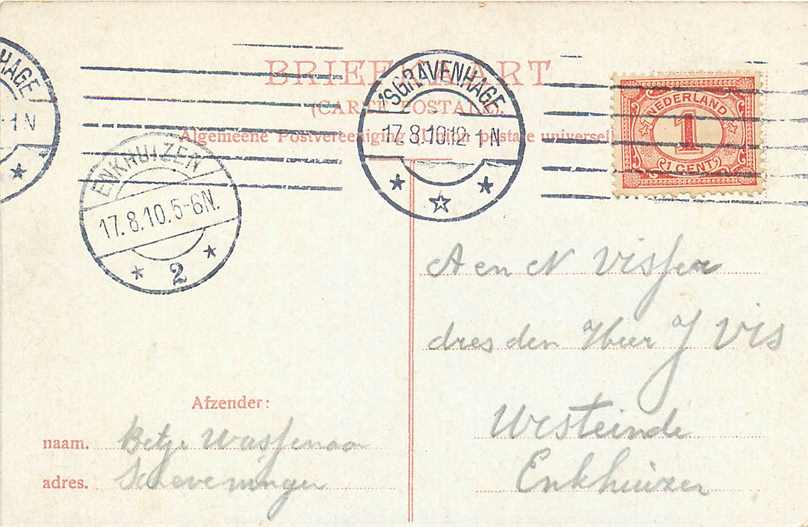 HAGE
1N
BRIEFKAART
(CARTE POSTALE).
Algemeene Postvereeniging postale universelle
'SGRAVENHAGE
17.8.10.12-1N
NEDERLAND
1
(1 CENT)
ENKHUIZEN
17.8.10.5-6N.
2
A en N Visser
dres den Heer J Vis
Westeinde
Enkhuizen
Afzender:
naam. Betje Wassenaar
adres. Scheveningen